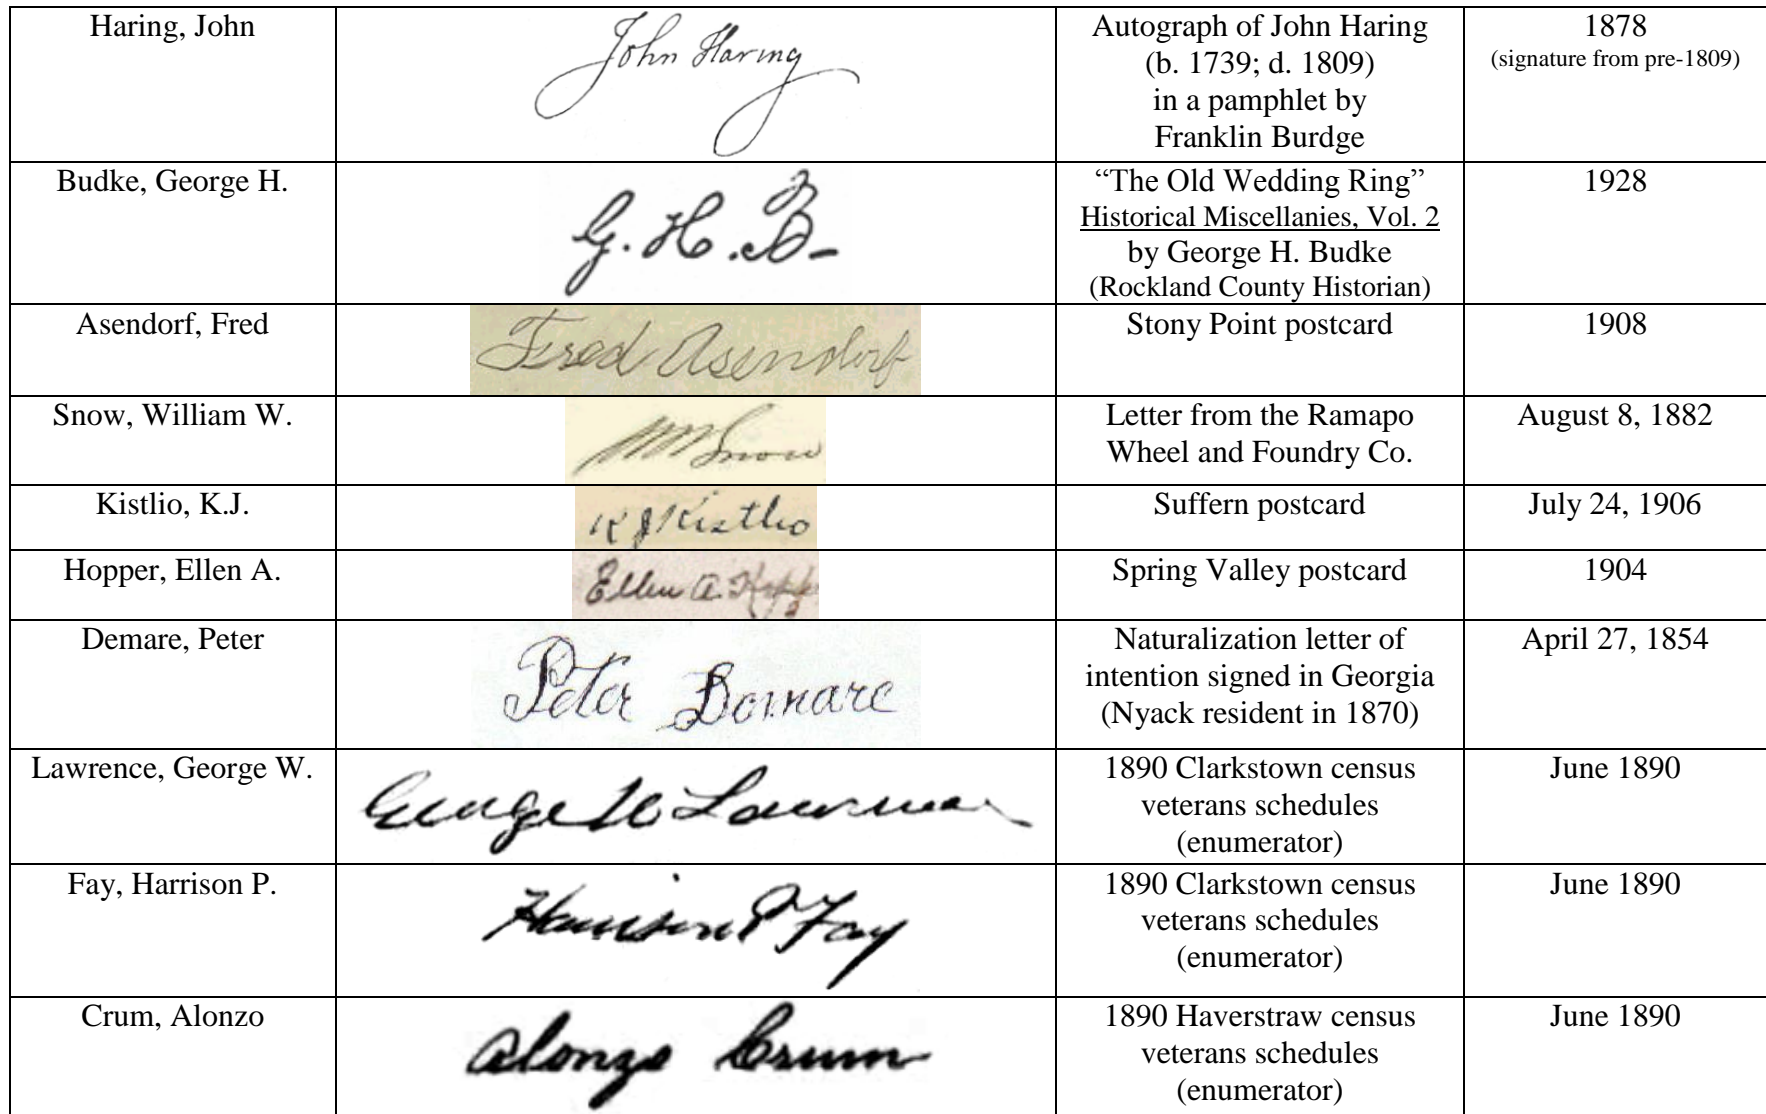 Haring, John
John Haring
Autograph of John Haring
(b. 1739; d. 1809)
in a pamphlet by
Franklin Burdge
1878
(signature from pre-1809)
Budke, George H.
G. H. B-
“The Old Wedding Ring”
Historical Miscellanies, Vol. 2
by George H. Budke
(Rockland County Historian)
1928
Asendorf, Fred
Fred Asendorf
Stony Point postcard
1908
Snow, William W.
WW Snow
Letter from the Ramapo
Wheel and Foundry Co.
August 8, 1882
Kistlio, K.J.
K J Kistlio
Suffern postcard
July 24, 1906
Hopper, Ellen A.
Ellen A. Hopp
Spring Valley postcard
1904
Demare, Peter
Peter Demare
Naturalization letter of
intention signed in Georgia
(Nyack resident in 1870)
April 27, 1854
Lawrence, George W.
George W Lawrence
1890 Clarkstown census
veterans schedules
(enumerator)
June 1890
Fay, Harrison P.
Harrison P Fay
1890 Clarkstown census
veterans schedules
(enumerator)
June 1890
Crum, Alonzo
Alonzo Crum
1890 Haverstraw census
veterans schedules
(enumerator)
June 1890